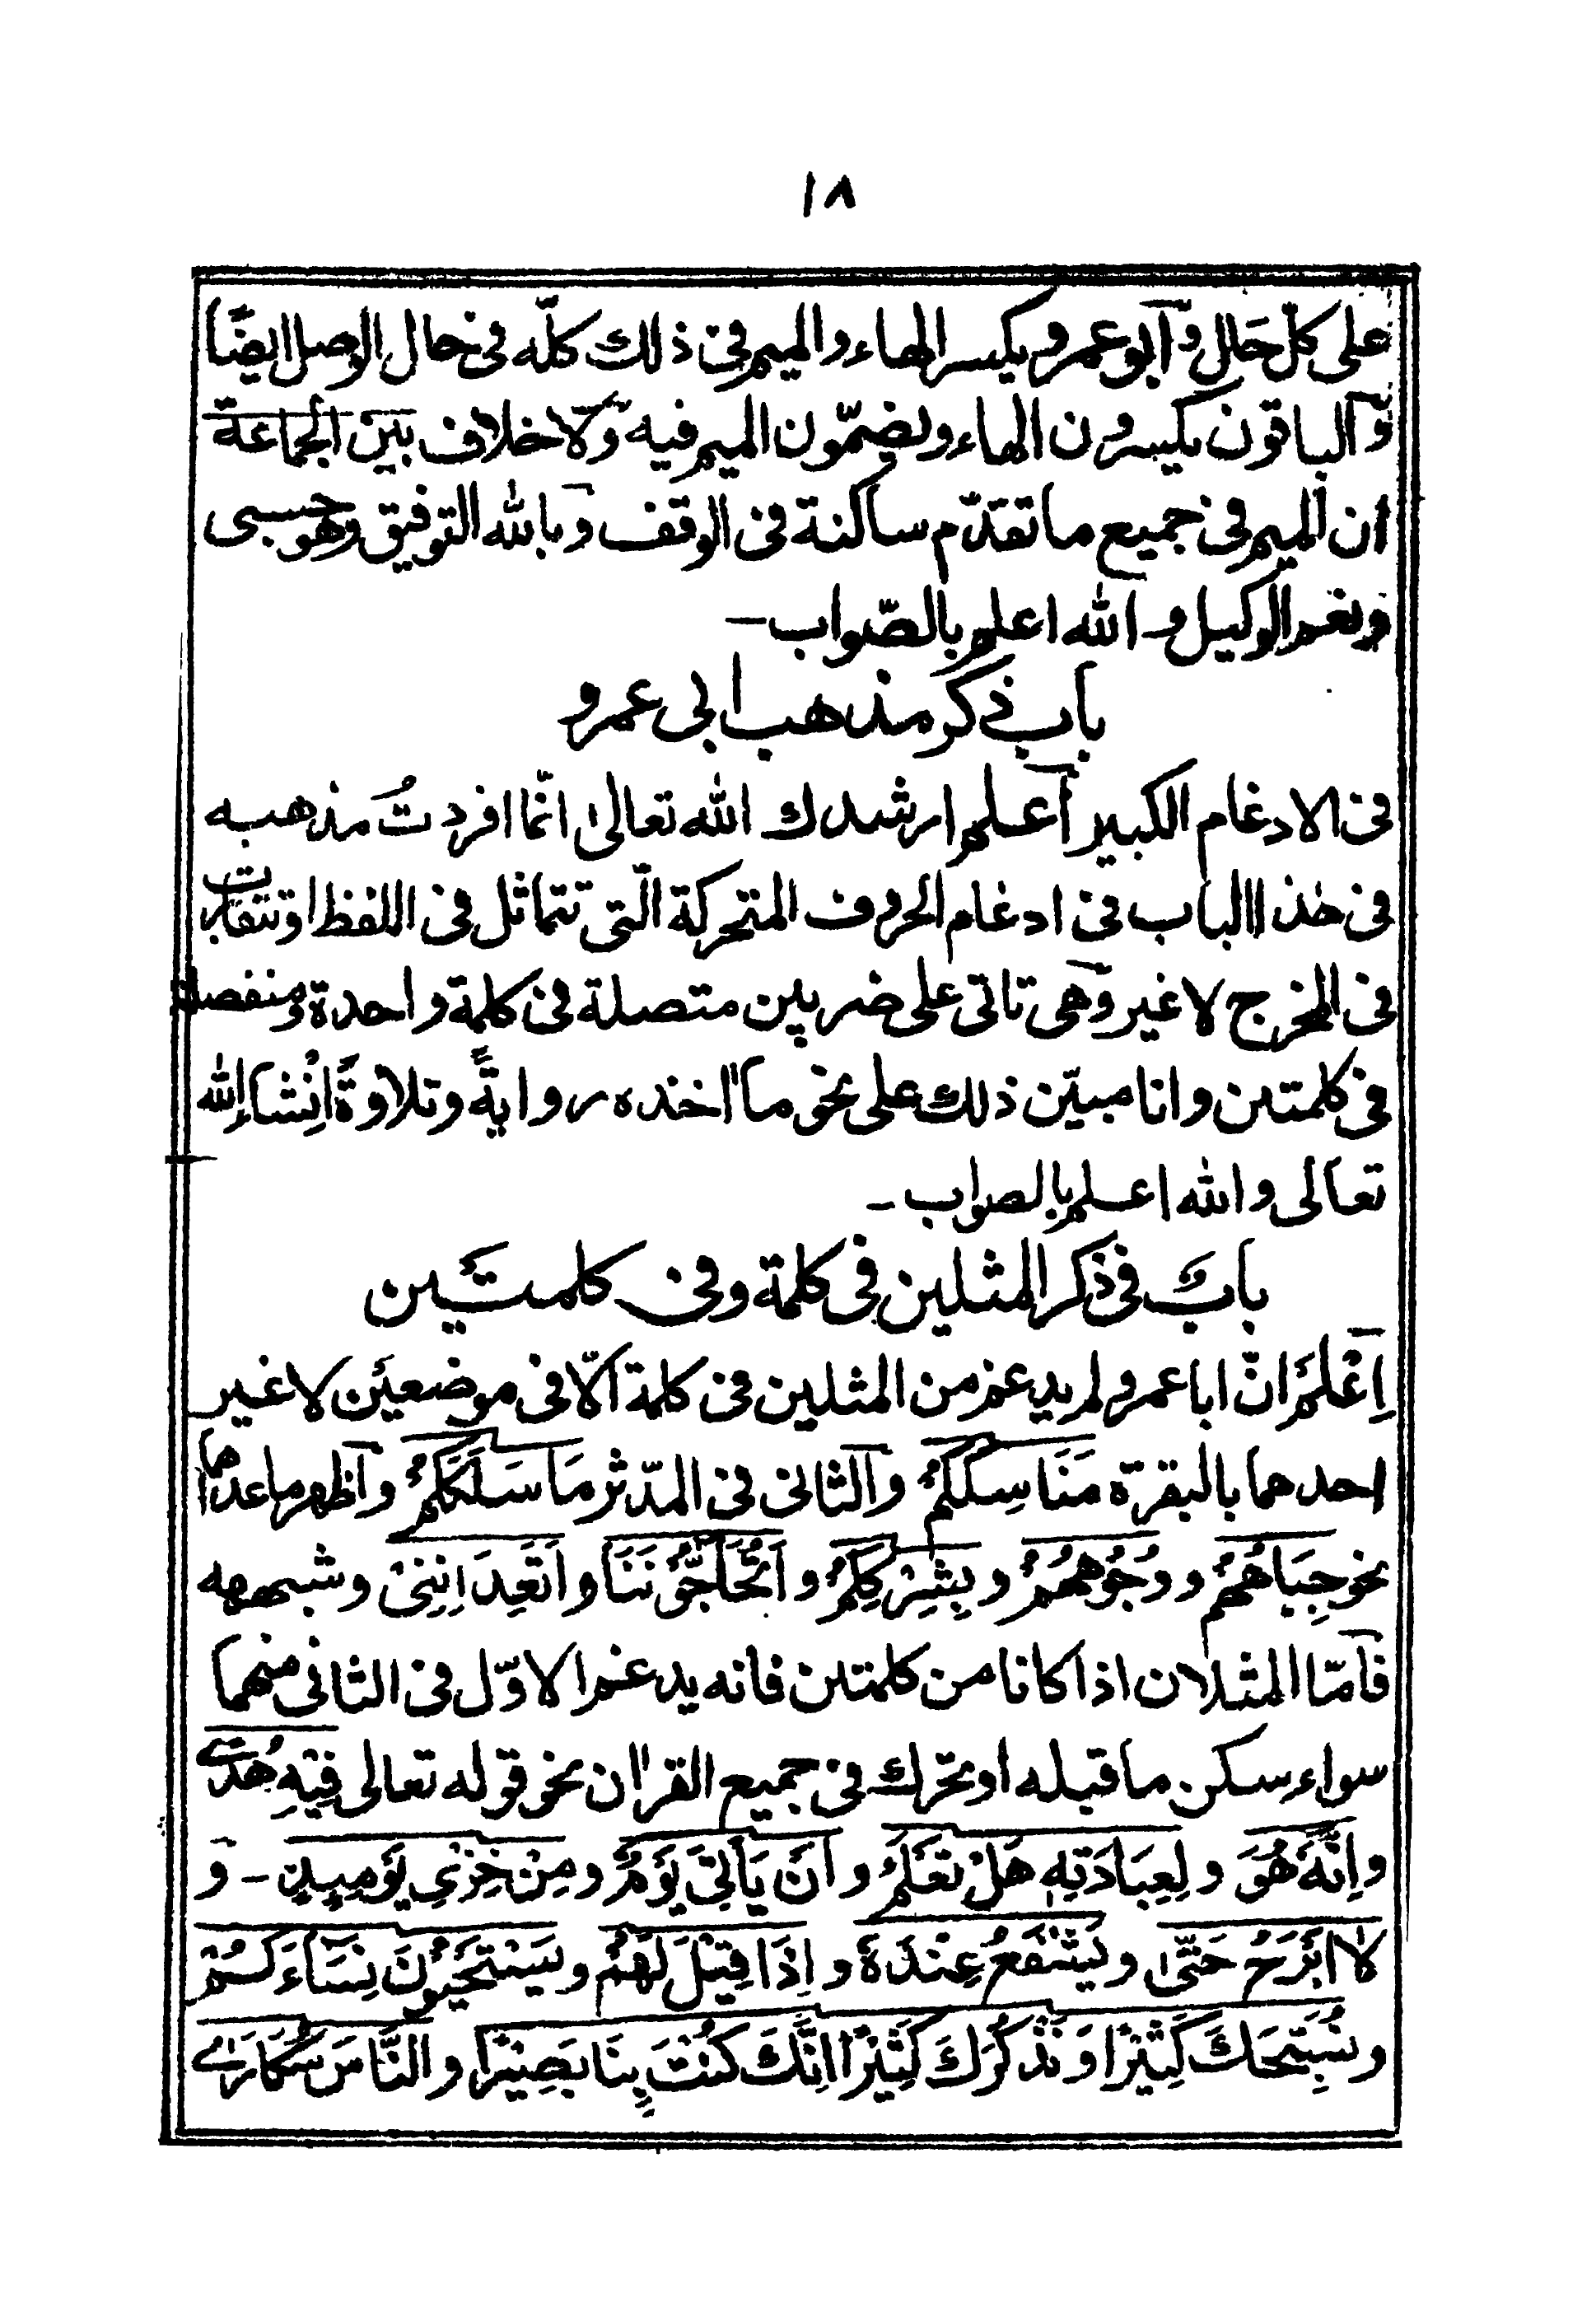 ١٨
على كلّ حَال وَآبو عمرو يكسر الهاء والميم فى ذلك كلّه فى حال الوصل ايضًا
وَّالباقون يكسرون الهاء ويضمّون الميم فيه وَلا خلاف بين الجماعة
ان الميم فى جميع ما تقدّم ساكنة فى الوقف وبالله التوفيق وهو حسبى
ونعم الوكيل و الله اعلم بالصّواب ـ
باب ذكر مذهب ابى عمرو
فى الادغام الكبير آعلم ارشدك الله تعالىٰ انّما افردتُ مذهبه
فى هٰذا الباب فى ادغام الحروف المتحركة الّتى تتماثل فى اللفظ او تتقارب
فى المخرج لا غير وَهى تاتى على ضربين متصلة فى كلمة واحدة ومنفصلة
فى كلمتين وانا مبيّن ذلك على نحو ما اخذه روايةً وتلاوةً اِنْشاءالله
تعالى والله اعلم بالصواب ـ
بابٌ فى ذكر المثلين فى كلمة وفى كلمتَين
اِعْلَمْ انّ ابا عمرو لم يدغم من المثلين فى كلمة الّا فى موضعَين لا غير
احدهما بالبقرة مَنَاسِكَكُمْ والثانى فى المدّثر مَا سَلَكَكُمْ وآظهر ما عداهما
نحو جِبَاهُهُمْ و وُجُوهُهُمْ و بِشِرْكِكُمْ و اَتُحَاجُّوْنَنَا و اَتَعِدَانِنِىْ وشبهه
فآمّا المثلان اذا كانا من كلمتين فانه يدغم الاوّل فى الثانى منهما
سواء سكن ما قبله او تحرك فى جميع القراٰن نحو قوله تعالى فِيْهِ هُدًى
و اِنَّهٗ هُوَ و لِعِبَادَتِهٖ هَلْ تَعْلَمُ و اَنْ يَأْتِىَ يَوْمٌ و مِنْ خِزْىِ يَوْمِئِذٍ ـ و
لَا اَبْرَحُ حَتّٰى و يَشْفَعُ عِنْدَهٗ و اِذَا قِيْلَ لَهُمْ و يَسْتَحْيُوْنَ نِسَآءَكُمْ
و نُسَبِّحَكَ كَثِيْرًا وَّ نَذْكُرَكَ كَثِيْرًا اِنَّكَ كُنْتَ بِنَا بَصِيْرًا و النَّاسَ سُكَارٰى